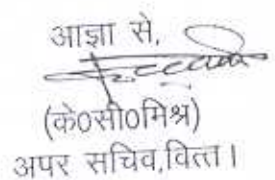 आज्ञा से,
(के०सी०मिश्र)
अपर सचिव,वित्त।